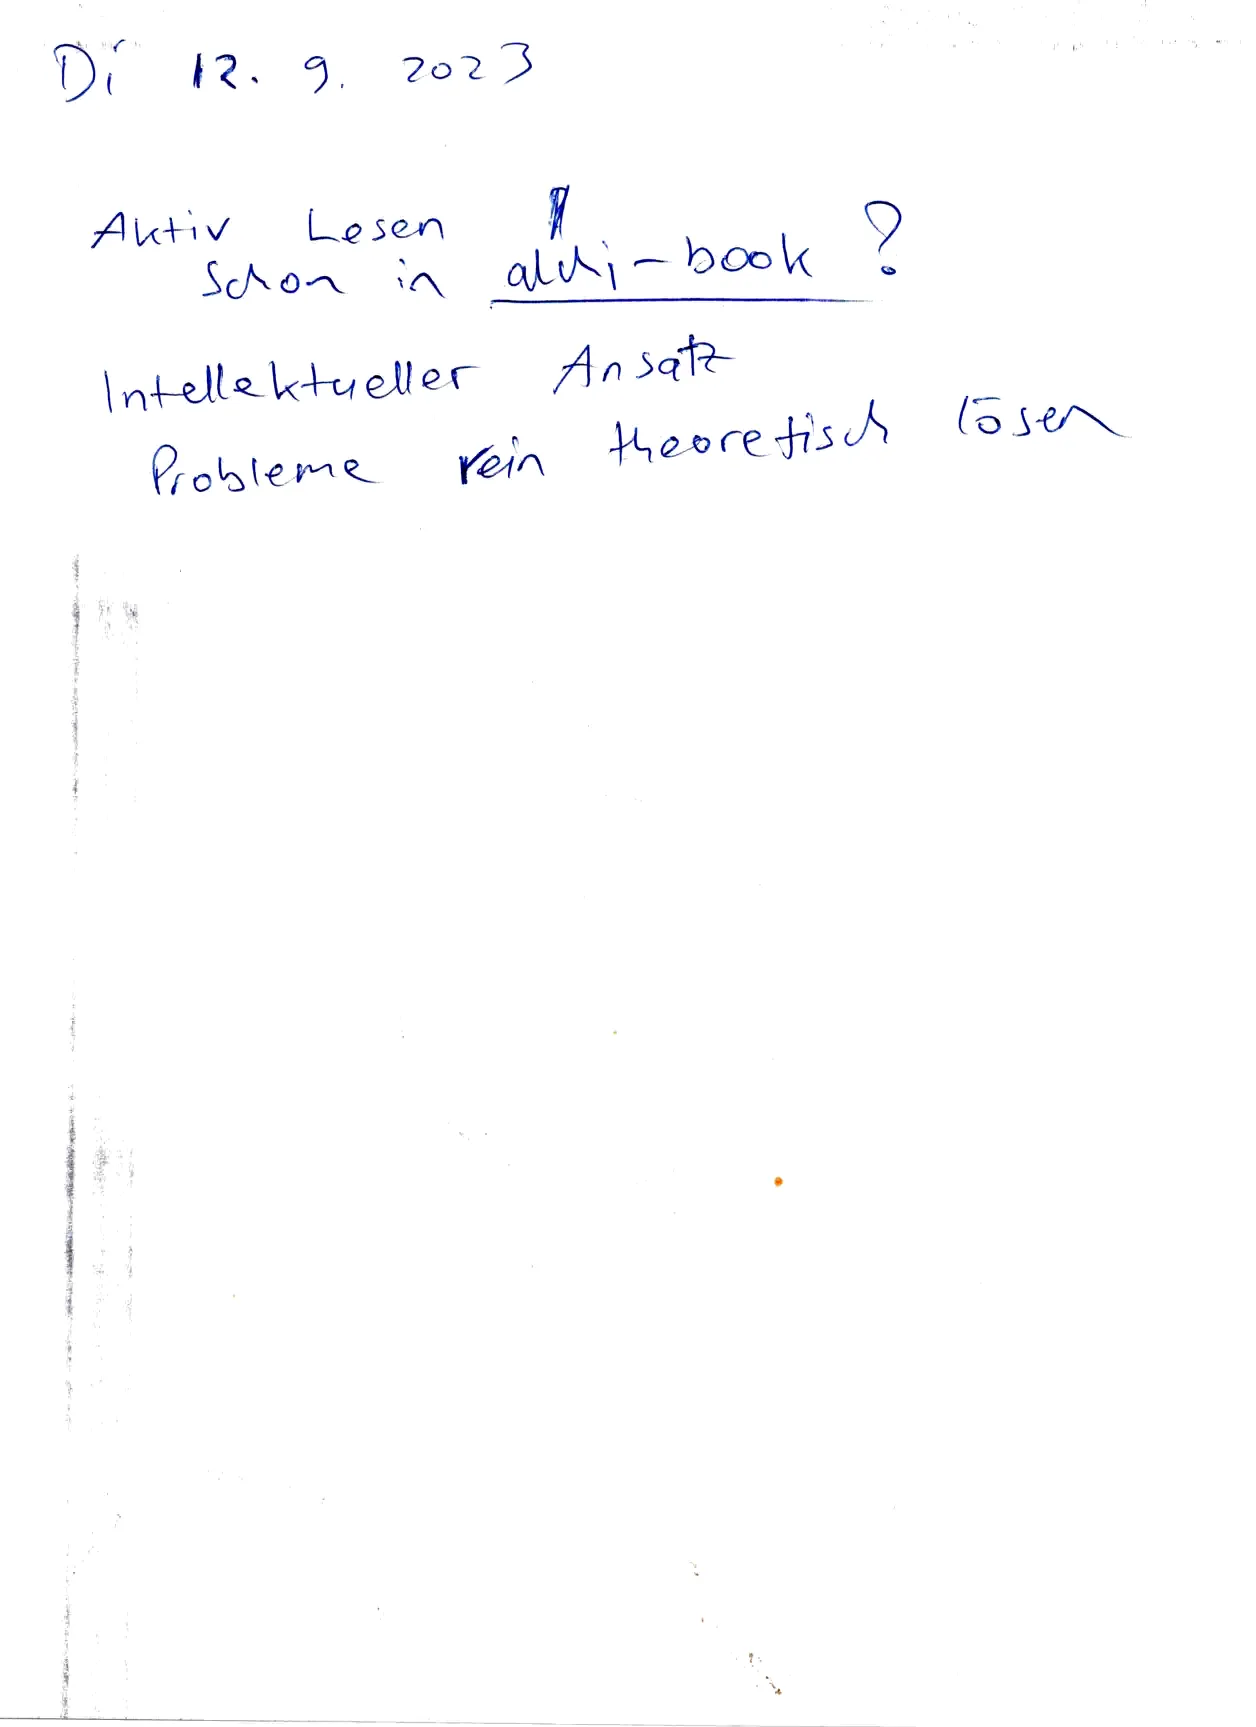 Di 12. 9. 2023
Aktiv Lesen
Schon in alchi-book ?
Intellektueller Ansatz
Probleme rein theoretisch lösen